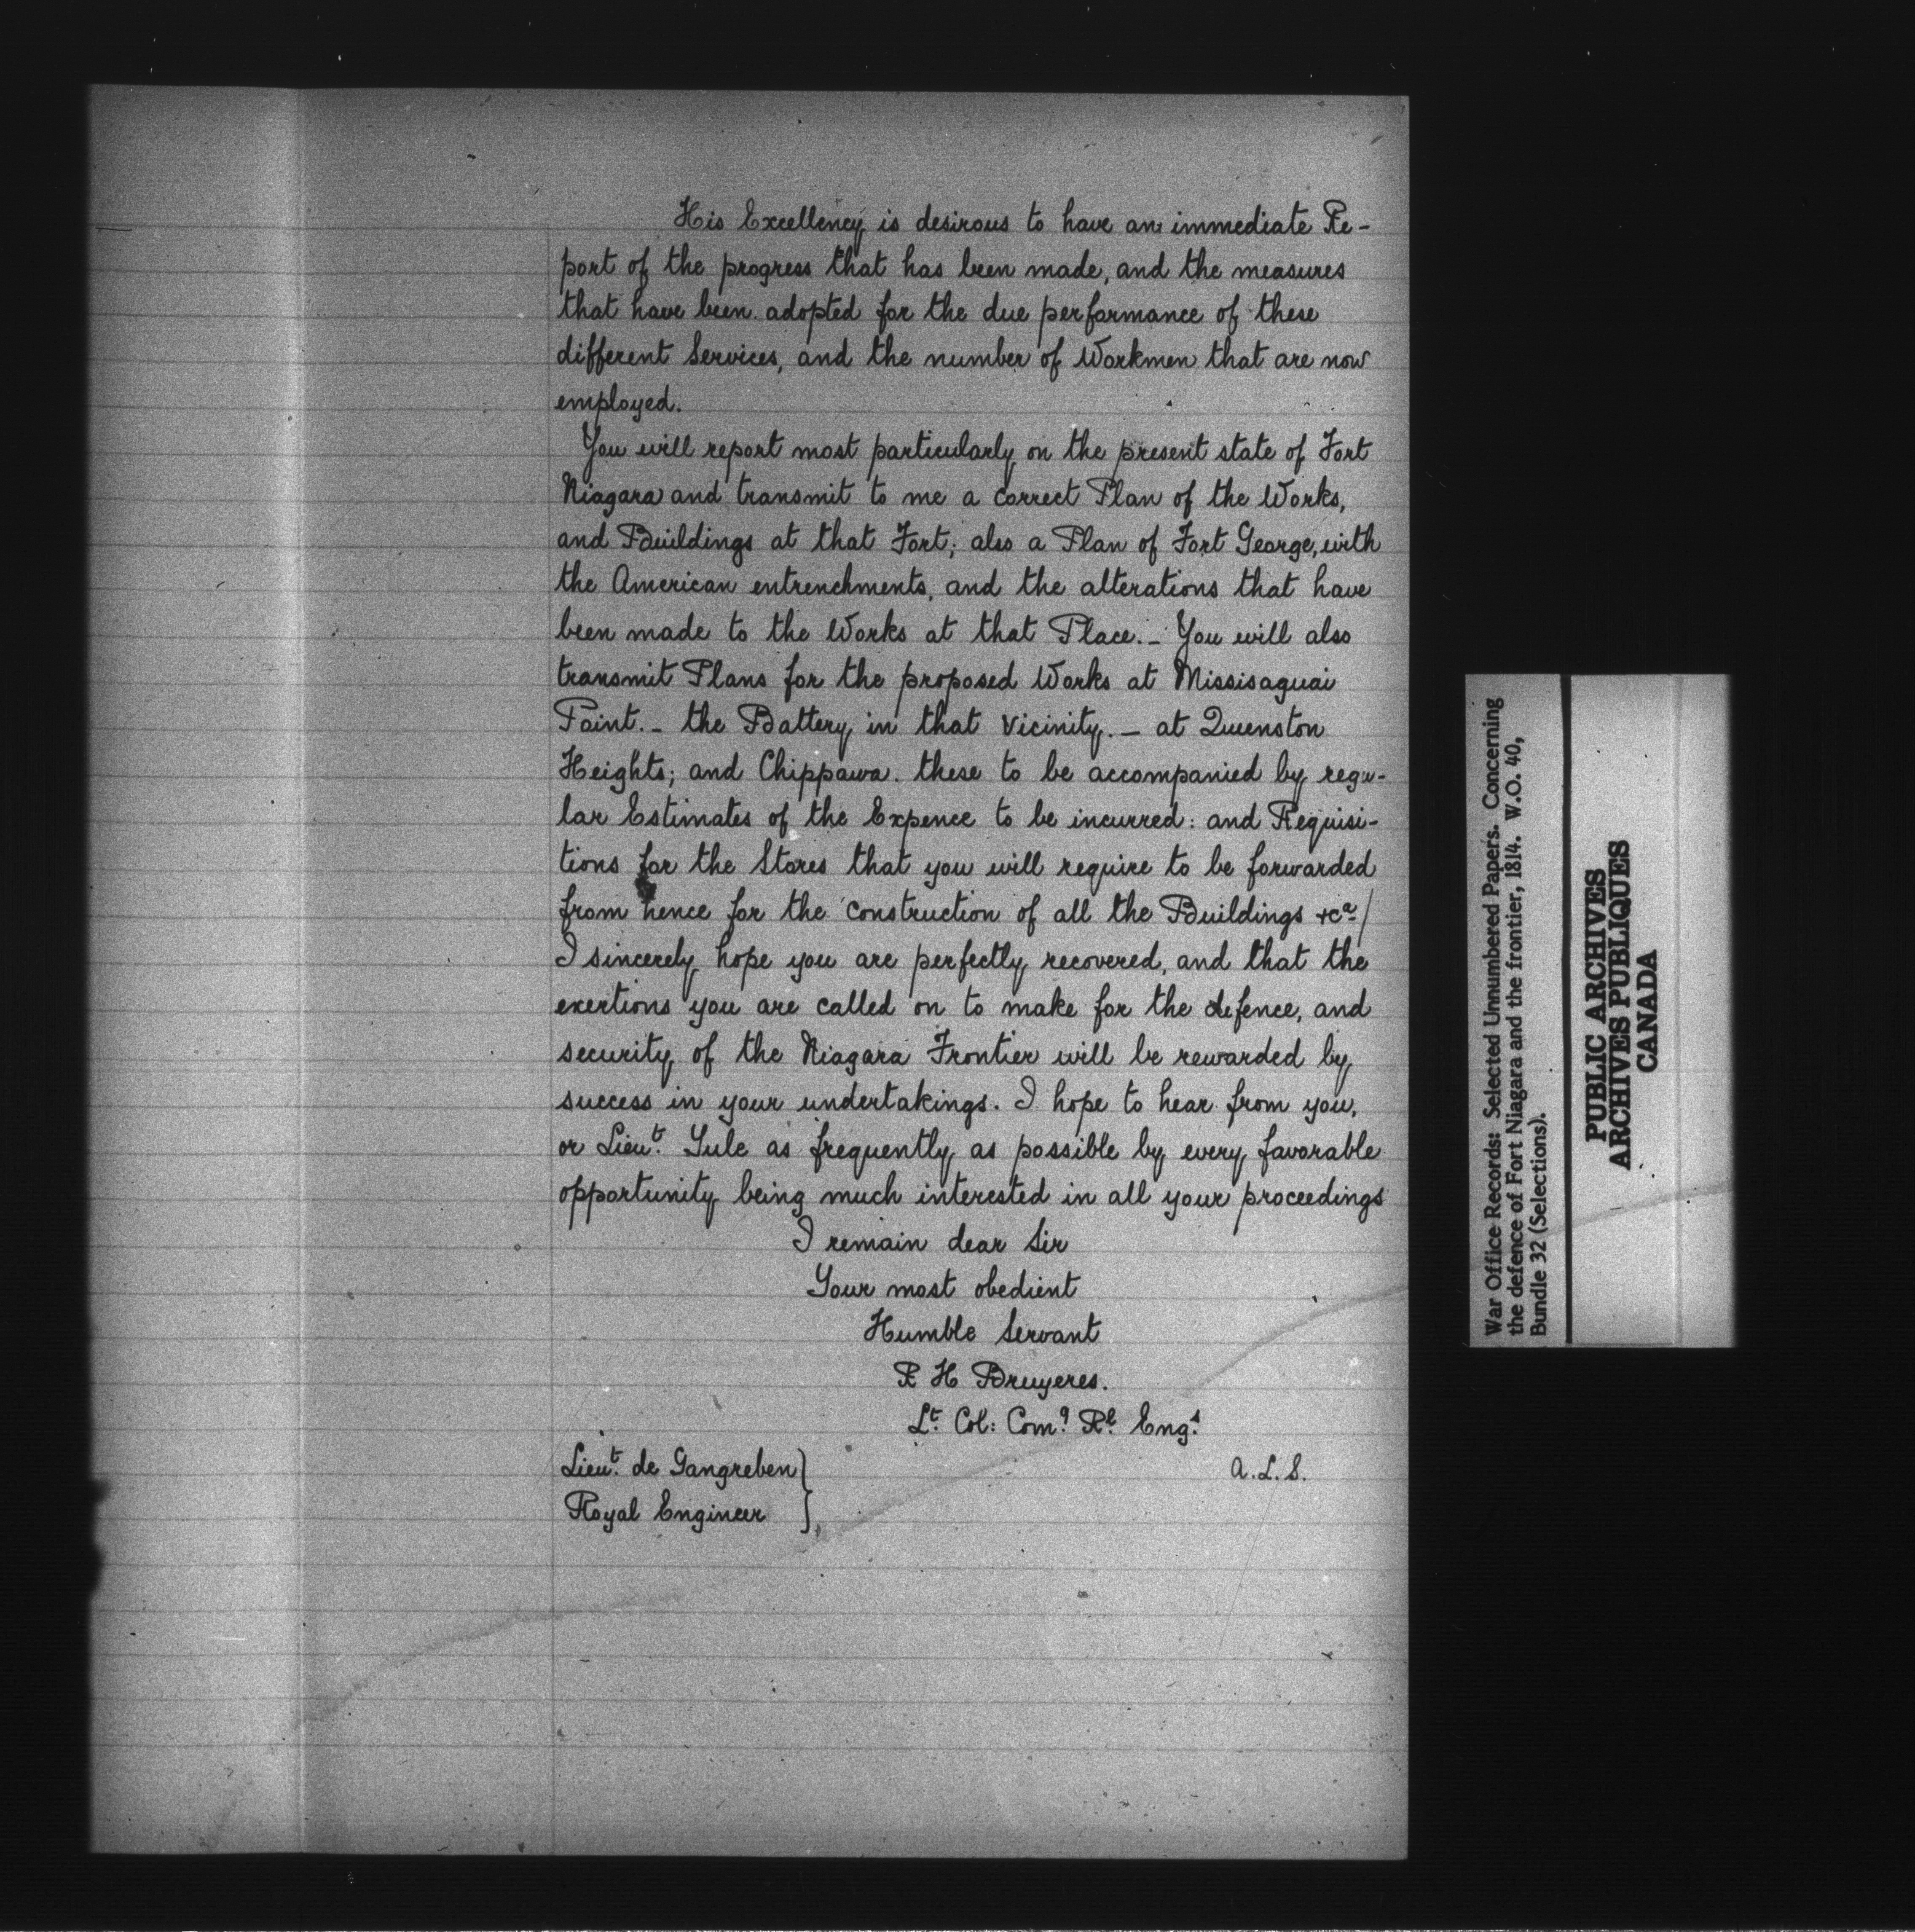 His Excellency is desirous to have an immediate Re-
port of the progress that has been made, and the measures
that have been adopted for the due performance of these
different Services, and the number of Workmen that are now
employed.
You will report most particularly on the present state of Fort
Niagara and transmit to me a correct Plan of the Works,
and Buildings at that Fort; also a Plan of Fort George, with
the American entrenchments, and the alterations that have
been made to the Works at that Place._ You will also
transmit Plans for the proposed Works at Missisaguai
Point._ the Battery in that vicinity._ at Queenston
Heights; and Chippawa. these to be accompanied by regu-
lar Estimates of the Expence to be incurred: and Requisi-
tions for the Stores that you will require to be forwarded
from hence for the construction of all the Buildings &ca/
I sincerely hope you are perfectly recovered, and that the
exertions you are called on to make for the defence, and
security of the Niagara Frontier will be rewarded by
success in your undertakings. I hope to hear from you,
or Lieut. Yule as frequently as possible by every favorable
opportunity being much interested in all your proceedings
I remain dear Sir
Your most obedient
Humble Servant
R H Bruyeres.
Lt. Col: Comg. Rl. Engs.
Lieut. de Gangreben }
Royal Engineer }
A.L.S.
War Office Records: Selected Unnumbered Papers. Concerning
the defence of Fort Niagara and the frontier, 1814. W.O. 40,
Bundle 32 (Selections).
PUBLIC ARCHIVES
ARCHIVES PUBLIQUES
CANADA